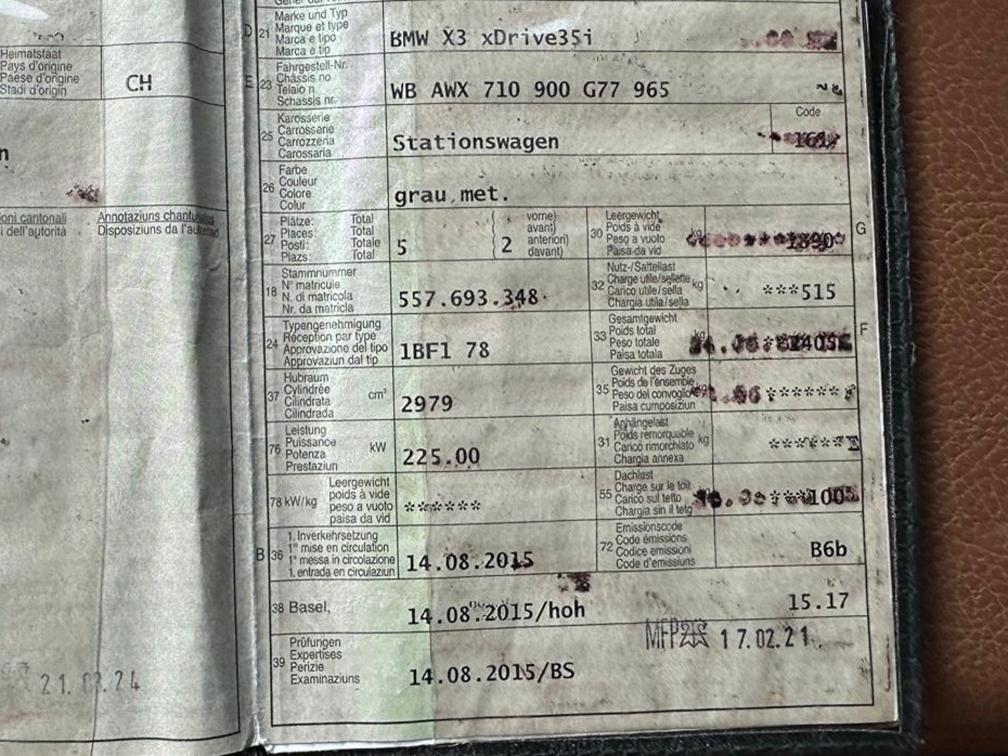 Heimatstaat
Pays d'origine
Paese d'origine
Stadi d'origin
CH
oni cantonali
i dell'autorità
Annotaziuns chantunalas
Disposiziuns da l'autoritad
D 21 Marke und Typ
Marque et type
Marca e tipo
Marca e tip
BMW X3 xDrive35i
E 23 Fahrgestell-Nr.
Châssis no
Telaio n
Schassis nr.
WB AWX 710 900 G77 965
25 Karosserie
Carrosserie
Carrozzeria
Carossaria
Stationswagen
Code
26 Farbe
Couleur
Colore
Colur
grau met.
27 Plätze: Total
Places: Total
Posti: Totale
Plazs: Total
5
( vorne)
avant)
anteriori)
( davant)
2
30 Leergewicht
Poids à vide
Peso a vuoto
Paisa da vid
kg
1890
G
18 Stammnummer
N° matricule
N. di matricola
Nr. da matricla
557.693.348
32 Nutz-/Sattellast
Charge utile/sellette
Carico utile/sella
Chargia utila/sella
kg
***515
24 Typengenehmigung
Réception par type
Approvazione del tipo
Approvaziun dal tip
1BF1 78
33 Gesamtgewicht
Poids total
Peso totale
Paisa totala
kg
2405
F
37 Hubraum
Cylindrée
Cilindrata
Cilindrada
cm³
2979
35 Gewicht des Zuges
Poids de l'ensemble
Peso del convoglio
Paisa cumposiziun
******
76 Leistung
Puissance
Potenza
Prestaziun
kW
225.00
31 Anhängelast
Poids remorquable
Carico rimorchiato
Chargia annexa
kg
******
78 kW/kg
Leergewicht
poids à vide
peso a vuoto
paisa da vid
******
55 Dachlast
Charge sur le toit
Carico sul tetto
Chargia sin il tetg
kg
***100
B 36 1. Inverkehrsetzung
1re mise en circulation
1a messa in circolazione
1. entrada en circulaziun
14.08.2015
72 Emissionscode
Code émissions
Codice emissioni
Code d'emissiuns
B6b
38 Basel,
14.08.2015/hoh
15.17
39 Prüfungen
Expertises
Perizie
Examinaziuns
14.08.2015/BS
17.02.21